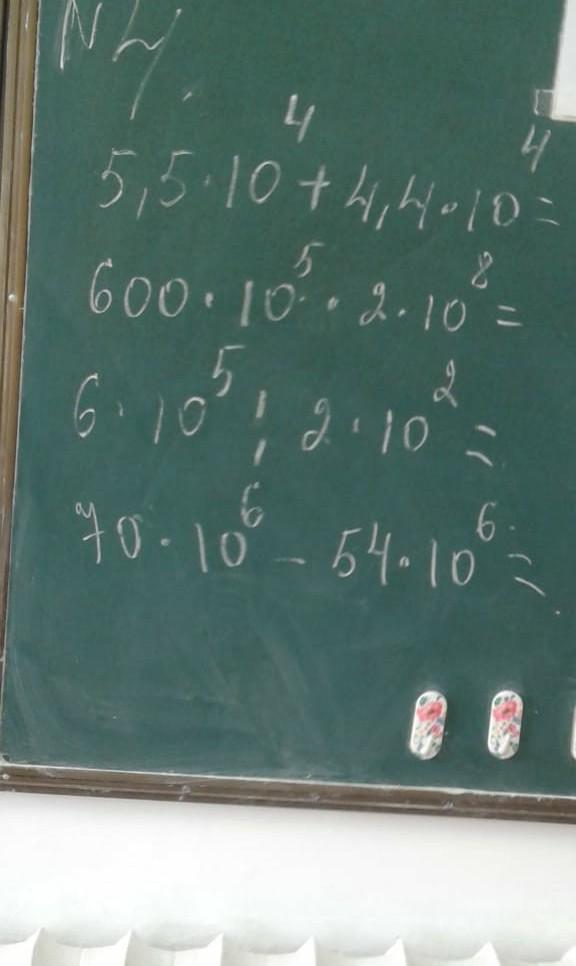 N4.
5,5·10⁴+4,4·10⁴=
600·10⁵·2·10⁸=
6·10⁵:2·10²=
70·10⁶-54·10⁶=